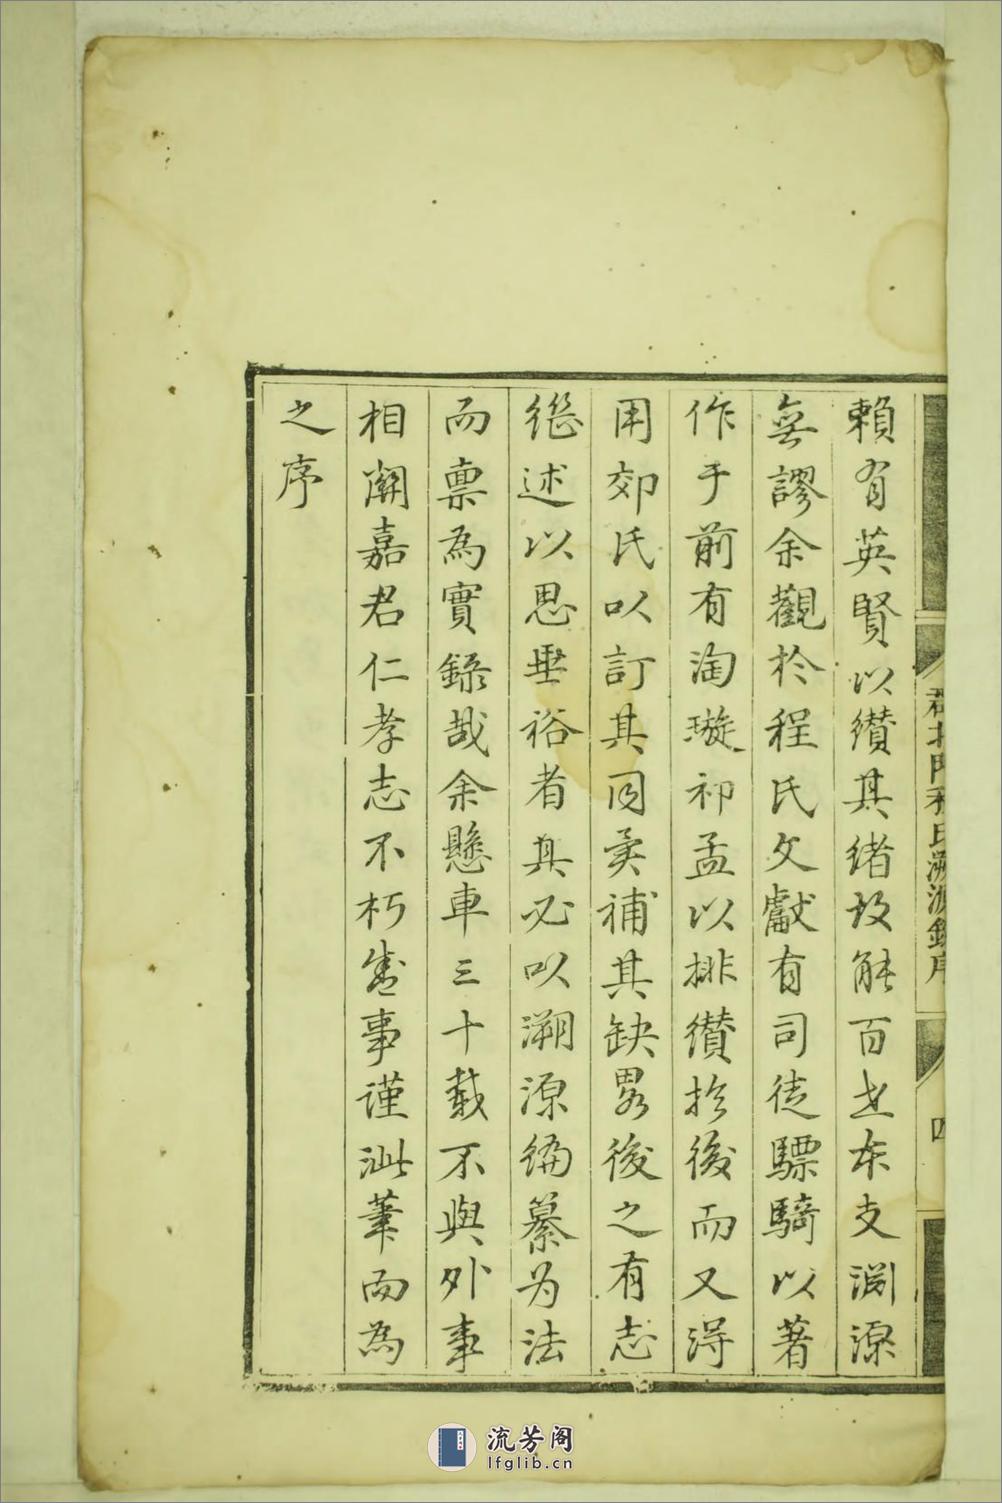 賴有英賢以纘其緒故能百世本支淵源
無謬余觀於程氏文獻有司徒驃騎以著
作于前有淘璇祁孟以排纘於後而又得
用郊氏以訂其同異補其缺畧後之有志
繼述以思垂裕者其必以溯源編纂为法
而稟為實錄哉余懸車三十載不與外事
相關嘉君仁孝志不朽盛事謹泚筆而為
之序
北門程氏溯源錄序
四
流芳阁
lfglib.cn